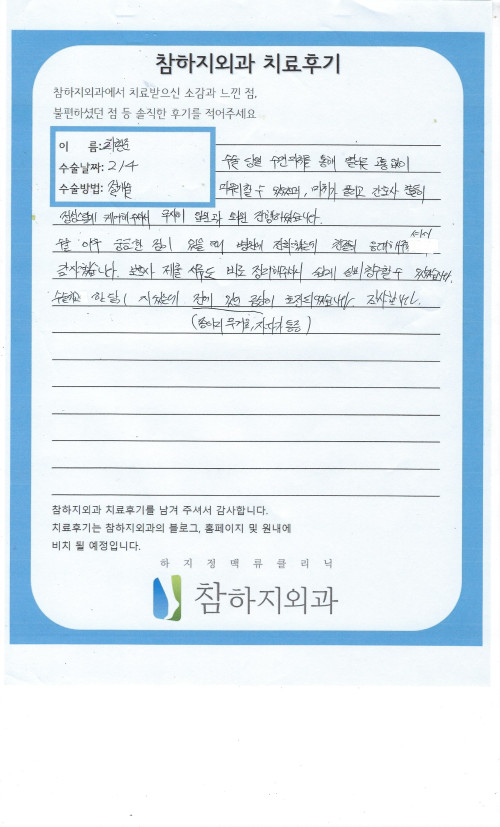 참하지외과 치료후기
참하지외과에서 치료받으신 소감과 느낀 점,
불편하셨던 점 등 솔직한 후기를 적어주세요
이 름:
수술날짜: 2/4
수술방법:
수술 당일 수면마취를 통해 별다른 고통 없이
마무리할 수 있었으며, 마취가 풀리고 간호사 분들이
정성스럽게 케어해주셔서 무사히 일본과 퇴원 진행하였습니다.
수술 아주 궁금한 점이 있을 때 병원에 전화했는데 친절히 응대해주셔서
감사했습니다. 보험사 제출 서류도 바로 정리해주셔서 쉽게 실비청구할 수 있었습니다.
수술하고 한달 지났는데 전에 있던 증상이 호전되었습니다. 감사합니다.
(종아리 무거움, 자다가 통증)
참하지외과 치료후기를 남겨 주셔서 감사합니다.
치료후기는 참하지외과의 블로그, 홈페이지 및 원내에
비치 될 예정입니다.
하지정맥류클리닉
참하지외과